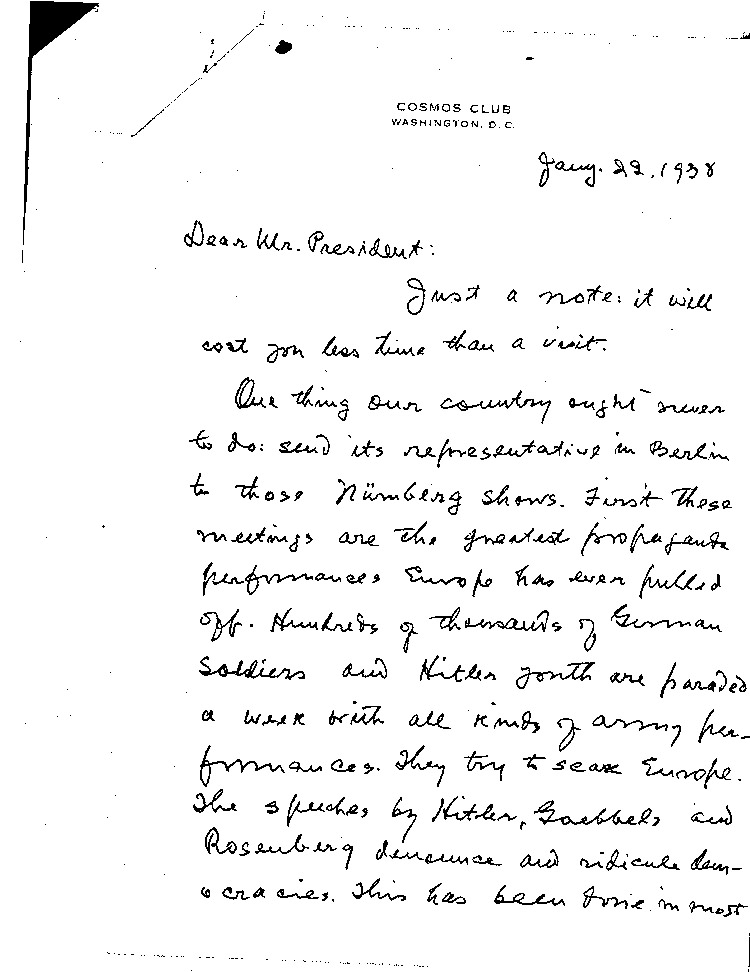 COSMOS CLUB
WASHINGTON, D.C.
Jany. 22, 1938
Dear Mr. President:
Just a note: it will
cost you less time than a visit.
One thing our country ought never
to do: send its representative in Berlin
to those Nürnberg shows. First these
meetings are the greatest propaganda
performances Europe has ever pulled
off. Hundreds of thousands of German
soldiers and Hitler youth are paraded
a week with all kinds of army per-
formances. They try to scare Europe.
The speeches by Hitler, Goebbels and
Rosenberg denounce and ridicule dem-
ocracies. This has been done in most